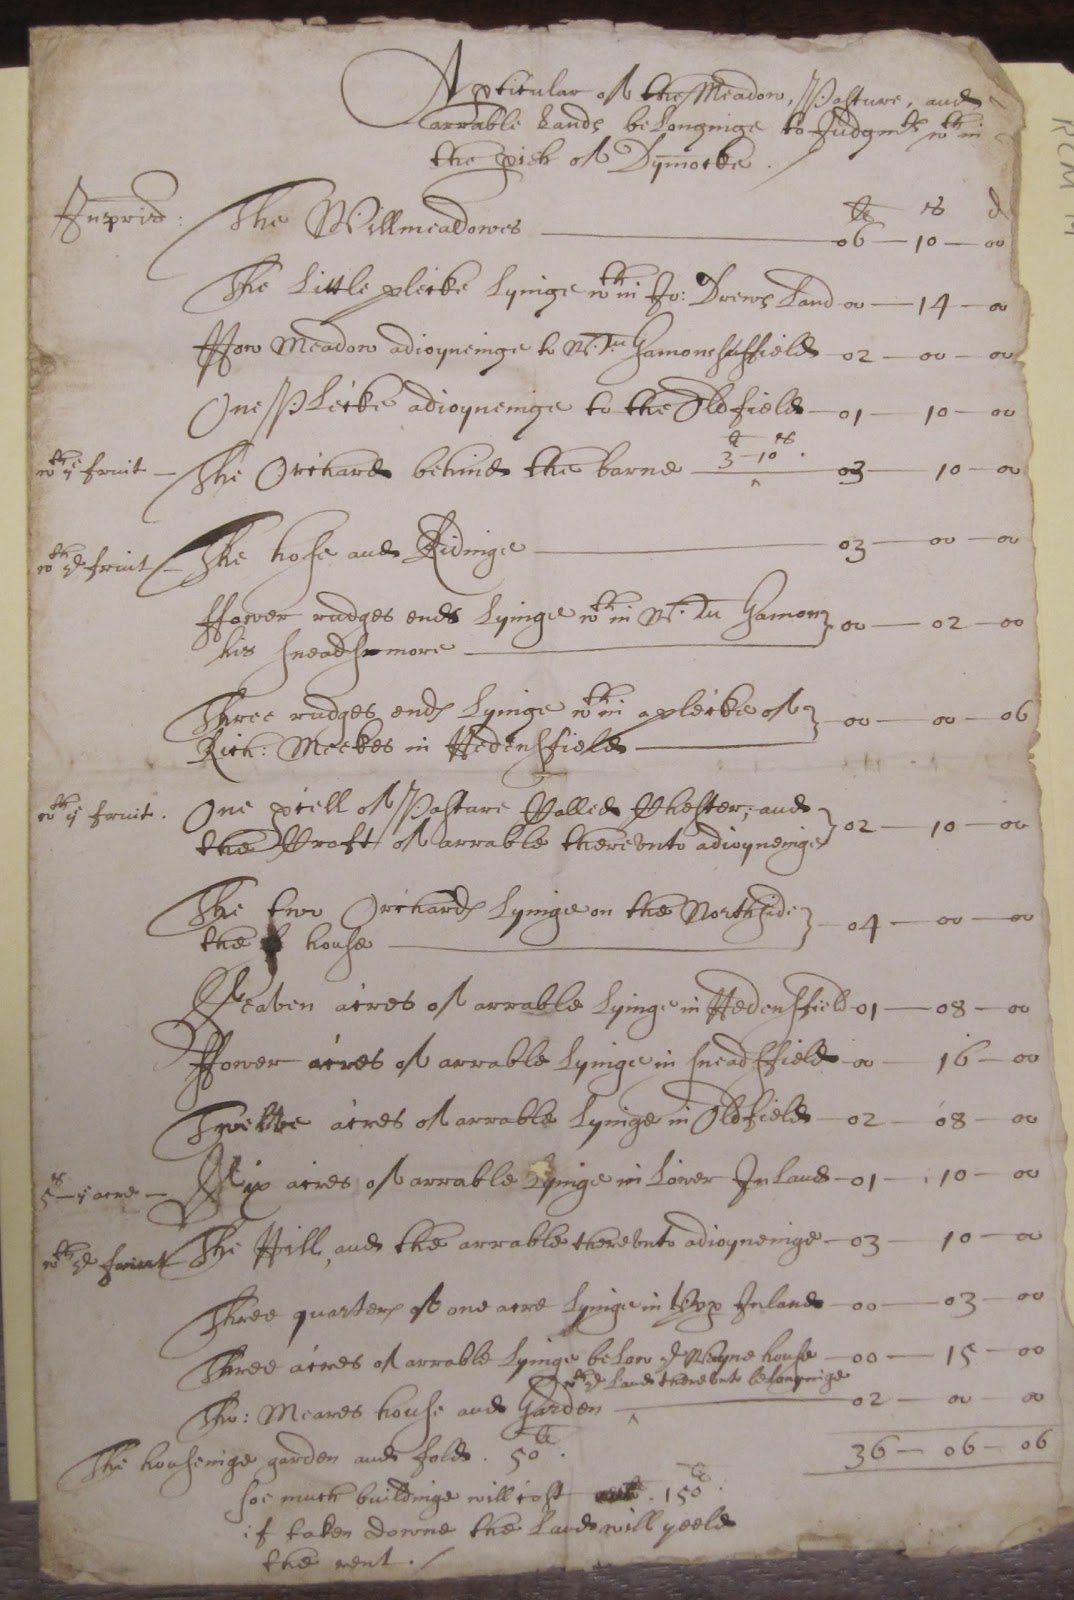 A pticular of the Meadow, Pasture, and
arrable Lands beLonginge to Judgmts wth in
the pish of Dymocke.
RCM M
li s d
Inpris: The Willmeadowes 06 — 10 — 00
The Little plecke Lyinge wth in Jo: Drews Land 00 — 14 — 00
How Meadow adioyneinge to Mr. Wm Gamons field 02 — 00 — 00
One PLecke adioyneinge to the Oldfield — 01 — 10 — 00
li s
3 — 10 .
wth ye fruit — The Orchard behind the barne ^ 03 — 10 — 00
wth ye fruit — The hose and Ridinge 03 — 00 — 00
ffower rudges ends Lyinge wth in Mr. Wm Gamon } 00 — 02 — 00
his sneadsmore
Three rudges ends Lyinge wth in a plecke of } 00 — 00 — 06
Rich: Meekes in Hedensfield
wth ye fruit. One pcell of Pasture Called Chester; and } 02 — 10 — 00
the Croft of arrable therevnto adioyneinge
The two Orchards Lyinge on the North side } 04 — 00 — 00
the house
Seaven acres of arrable Lyinge in Hedensfield 01 — 08 — 00
ffower acres of arrable Lyinge in sneadsfield 00 — 16 — 00
Twelve acres of arrable Lyinge in Oldfield — 02 — 08 — 00
5s — ye acre — Six acres of arrable Lyinge in Lower InLand — 01 — 10 — 00
wth ye fruit The Hill, and the arrable therevnto adioyneinge — 03 — 10 — 00
Three quarters of one acre Lyinge in Vpp Inland — 00 — 03 — 00
Three acres of arrable Lyinge beLow ye Wayne house — 00 — 15 — 00
wth ye Land therevnto belonginge
Tho: Meares house and Garden ^ 02 — 00 — 00
36 — 06 — 06
The houseinge garden and fold. 50li.
soe much buildinge will cost . 150li.
if taken downe the Land will yeeld
the rent.